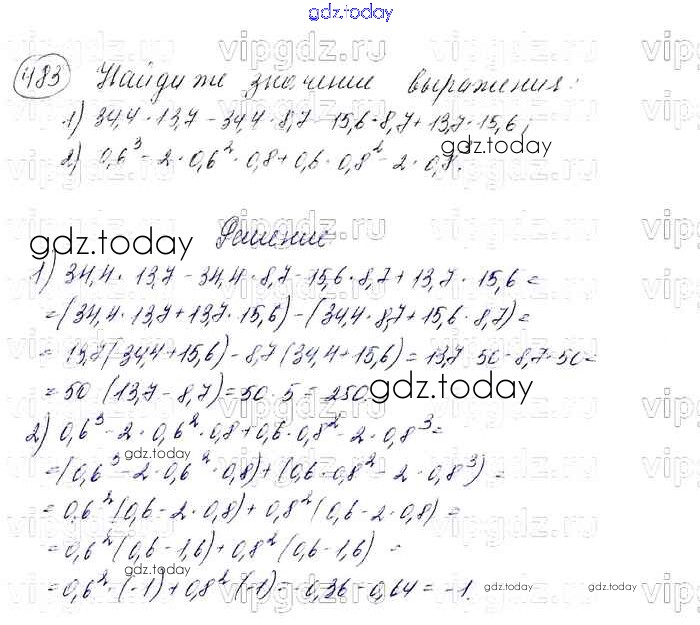 gdz.today
483 Найдите значение выражения:
1) 34,4 · 13,7 - 34,4 · 8,7 - 15,6 · 8,7 + 13,7 · 15,6;
gdz.today
2) 0,6³ - 2 · 0,6² · 0,8 + 0,6 · 0,8² - 2 · 0,8³.
gdz.today
Решение
1) 34,4 · 13,7 - 34,4 · 8,7 - 15,6 · 8,7 + 13,7 · 15,6 =
= (34,4 · 13,7 + 13,7 · 15,6) - (34,4 · 8,7 + 15,6 · 8,7) =
= 13,7 (34,4 + 15,6) - 8,7 (34,4 + 15,6) = 13,7 · 50 - 8,7 · 50 =
= 50 (13,7 - 8,7) = 50 · 5 = 250.
gdz.today
2) 0,6³ - 2 · 0,6² · 0,8 + 0,6 · 0,8² - 2 · 0,8³ =
gdz.today
= (0,6³ - 2 · 0,6² · 0,8) + (0,6 · 0,8² - 2 · 0,8³) =
= 0,6² (0,6 - 2 · 0,8) + 0,8² (0,6 - 2 · 0,8) =
= 0,6² (0,6 - 1,6) + 0,8² (0,6 - 1,6) =
= 0,6² · (-1) + 0,8² · (-1) = -0,36 - 0,64 = -1.
gdz.today
gdz.today
gdz.today
vipgdz.ru
vipgdz.ru
vipgdz.ru